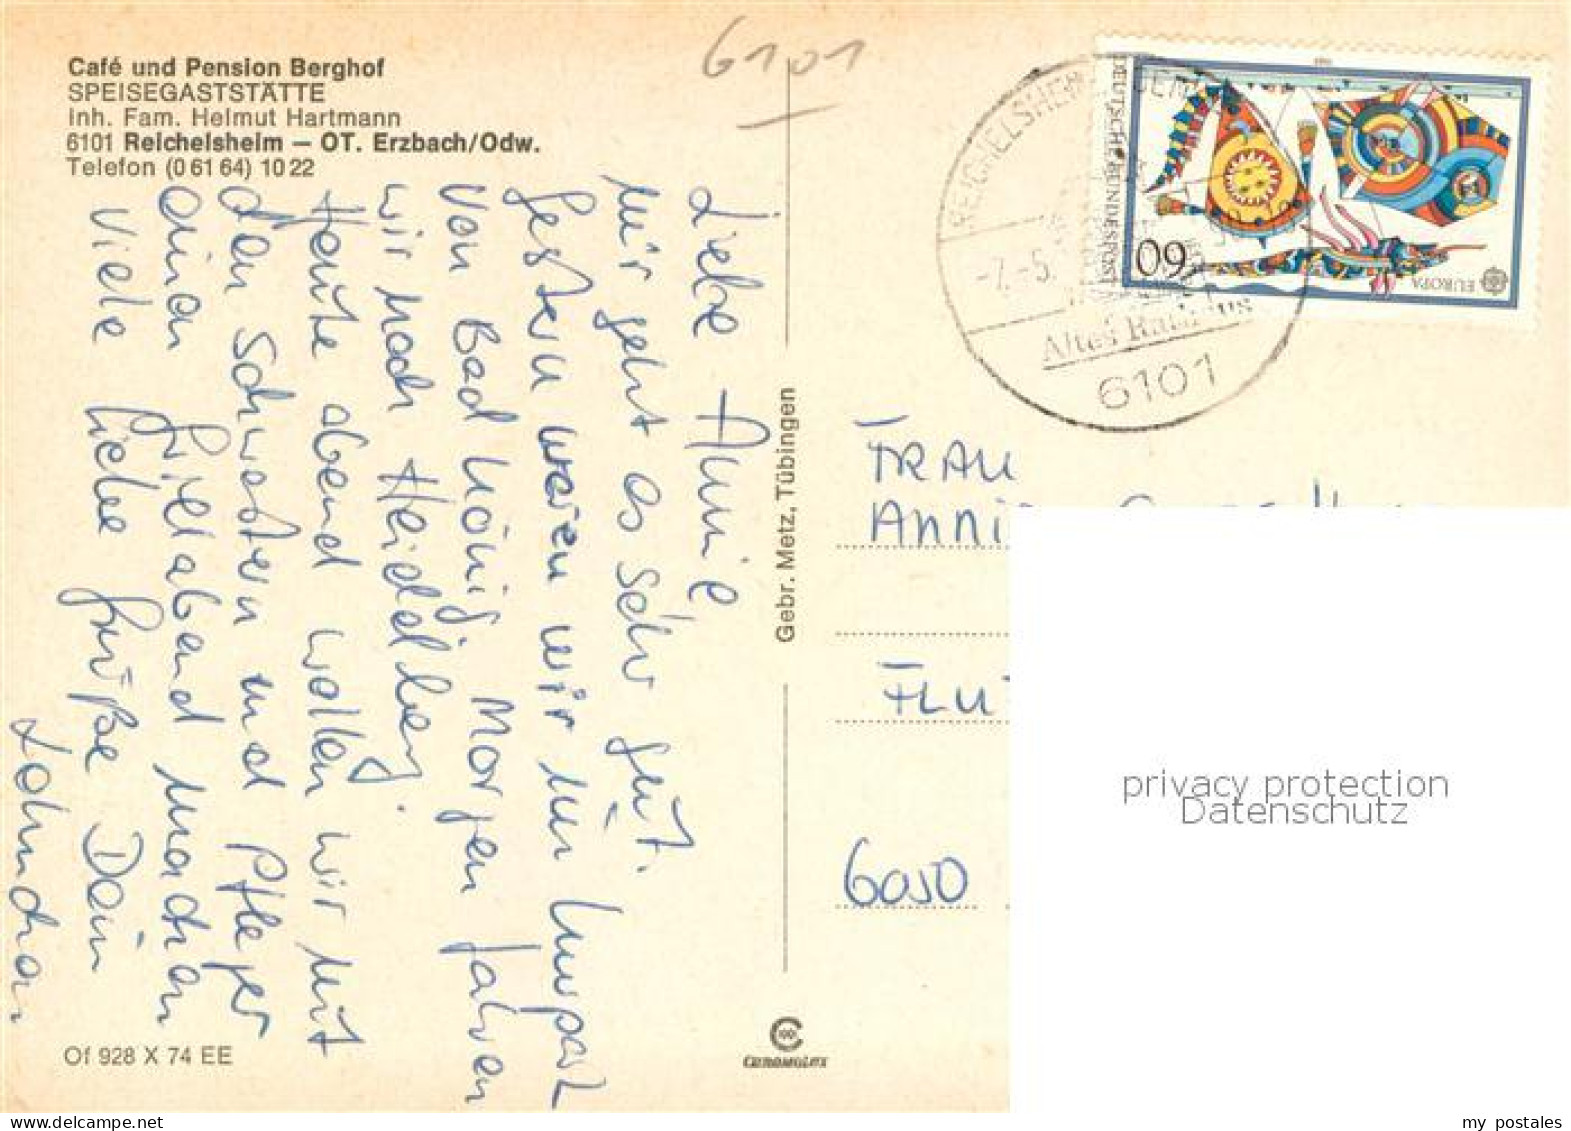 Café und Pension Berghof
SPEISEGASTSTÄTTE
Inh. Fam. Helmut Hartmann
6101 Reichelsheim – OT. Erzbach/Odw.
Telefon (0 61 64) 10 22
6101
Liebe Annie
Mir geht es sehr gut.
Gestern waren wir im Kurpark
von Bad König. Morgen fahren
wir nach Heidelberg.
Heute abend wollen wir mit
den Schwestern und Pfleger
einen Grillabend machen
Viele liebe Grüße Dein
Of 928 X 74 EE
Gebr. Metz, Tübingen
CEKOMOLEX
DEUTSCHE BUNDESPOST
60
EUROPA
REICHELSHEIM
-7.-5.
Altes Rathaus
6101
FRAU
6050
privacy protection
Datenschutz
my_postales